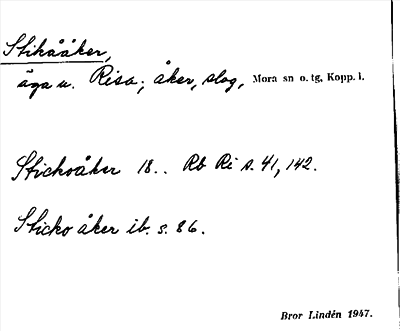 Stikåaker,
äga u. Risa; åker, slog, Mora sn o. tg, Kopp. l.
Stickoåker 18.. Rb Ri s. 41, 142.
Sticko åker ib. s. 86.
Bror Lindén 1947.